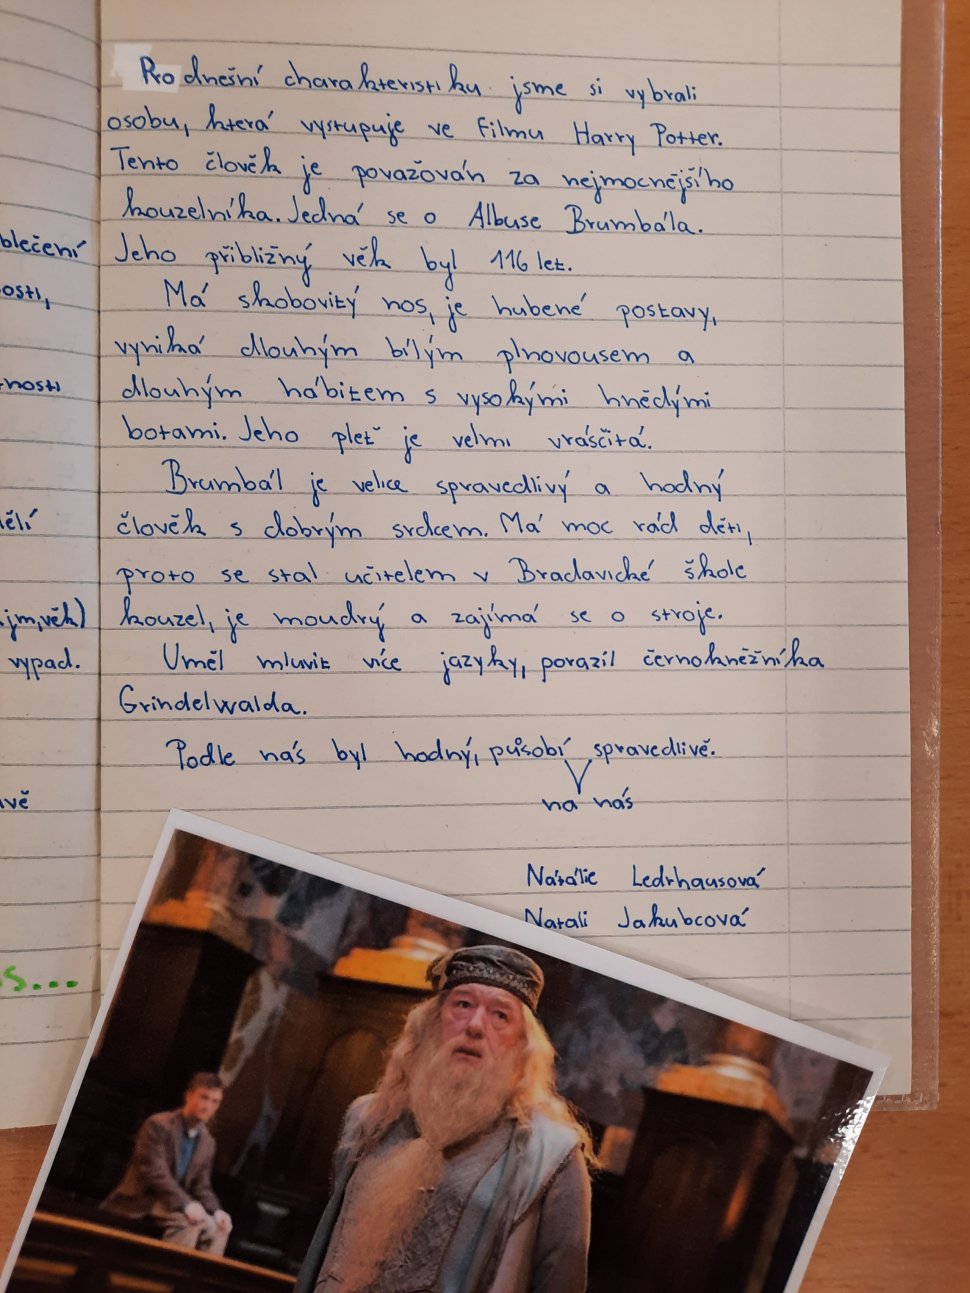 blečení
osti,
nosti
ělí
jm, věk)
vypad.
vě
s...
Pro dnešní charakteristiku jsme si vybrali
osobu, která vystupuje ve filmu Harry Potter.
Tento člověk je považován za nejmocnějšího
kouzelníka. Jedná se o Albuse Brumbála.
Jeho přibližný věk byl 116 let.
Má skobovitý nos, je hubené postavy,
vyniká dlouhým bílým plnovousem a
dlouhým hábitem s vysokými hnědými
botami. Jeho pleť je velmi vrásčitá.
Brumbál je velice spravedlivý a hodný
člověk s dobrým srdcem. Má moc rád děti,
proto se stal učitelem v Bradavické škole
kouzel, je moudrý a zajímá se o stroje.
Uměl mluvit více jazyky, porazil černokněžníka
Grindelwalda.
Podle nás byl hodný, působí spravedlivě.
na nás
Natálie Ledrhausová
Natali Jakubcová